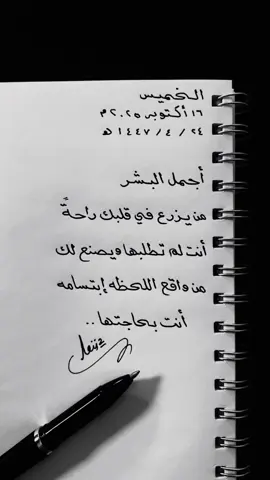 الخميس
١٦ أكتوبر ٢٠٢٥ م
٢٤ / ٤ / ١٤٤٧ هـ
أجمل البشر
من يزرع في قلبك راحةً
أنت لم تطلبها ويصنع لك
من واقع اللحظه إبتسامه
أنت بحاجتها ..